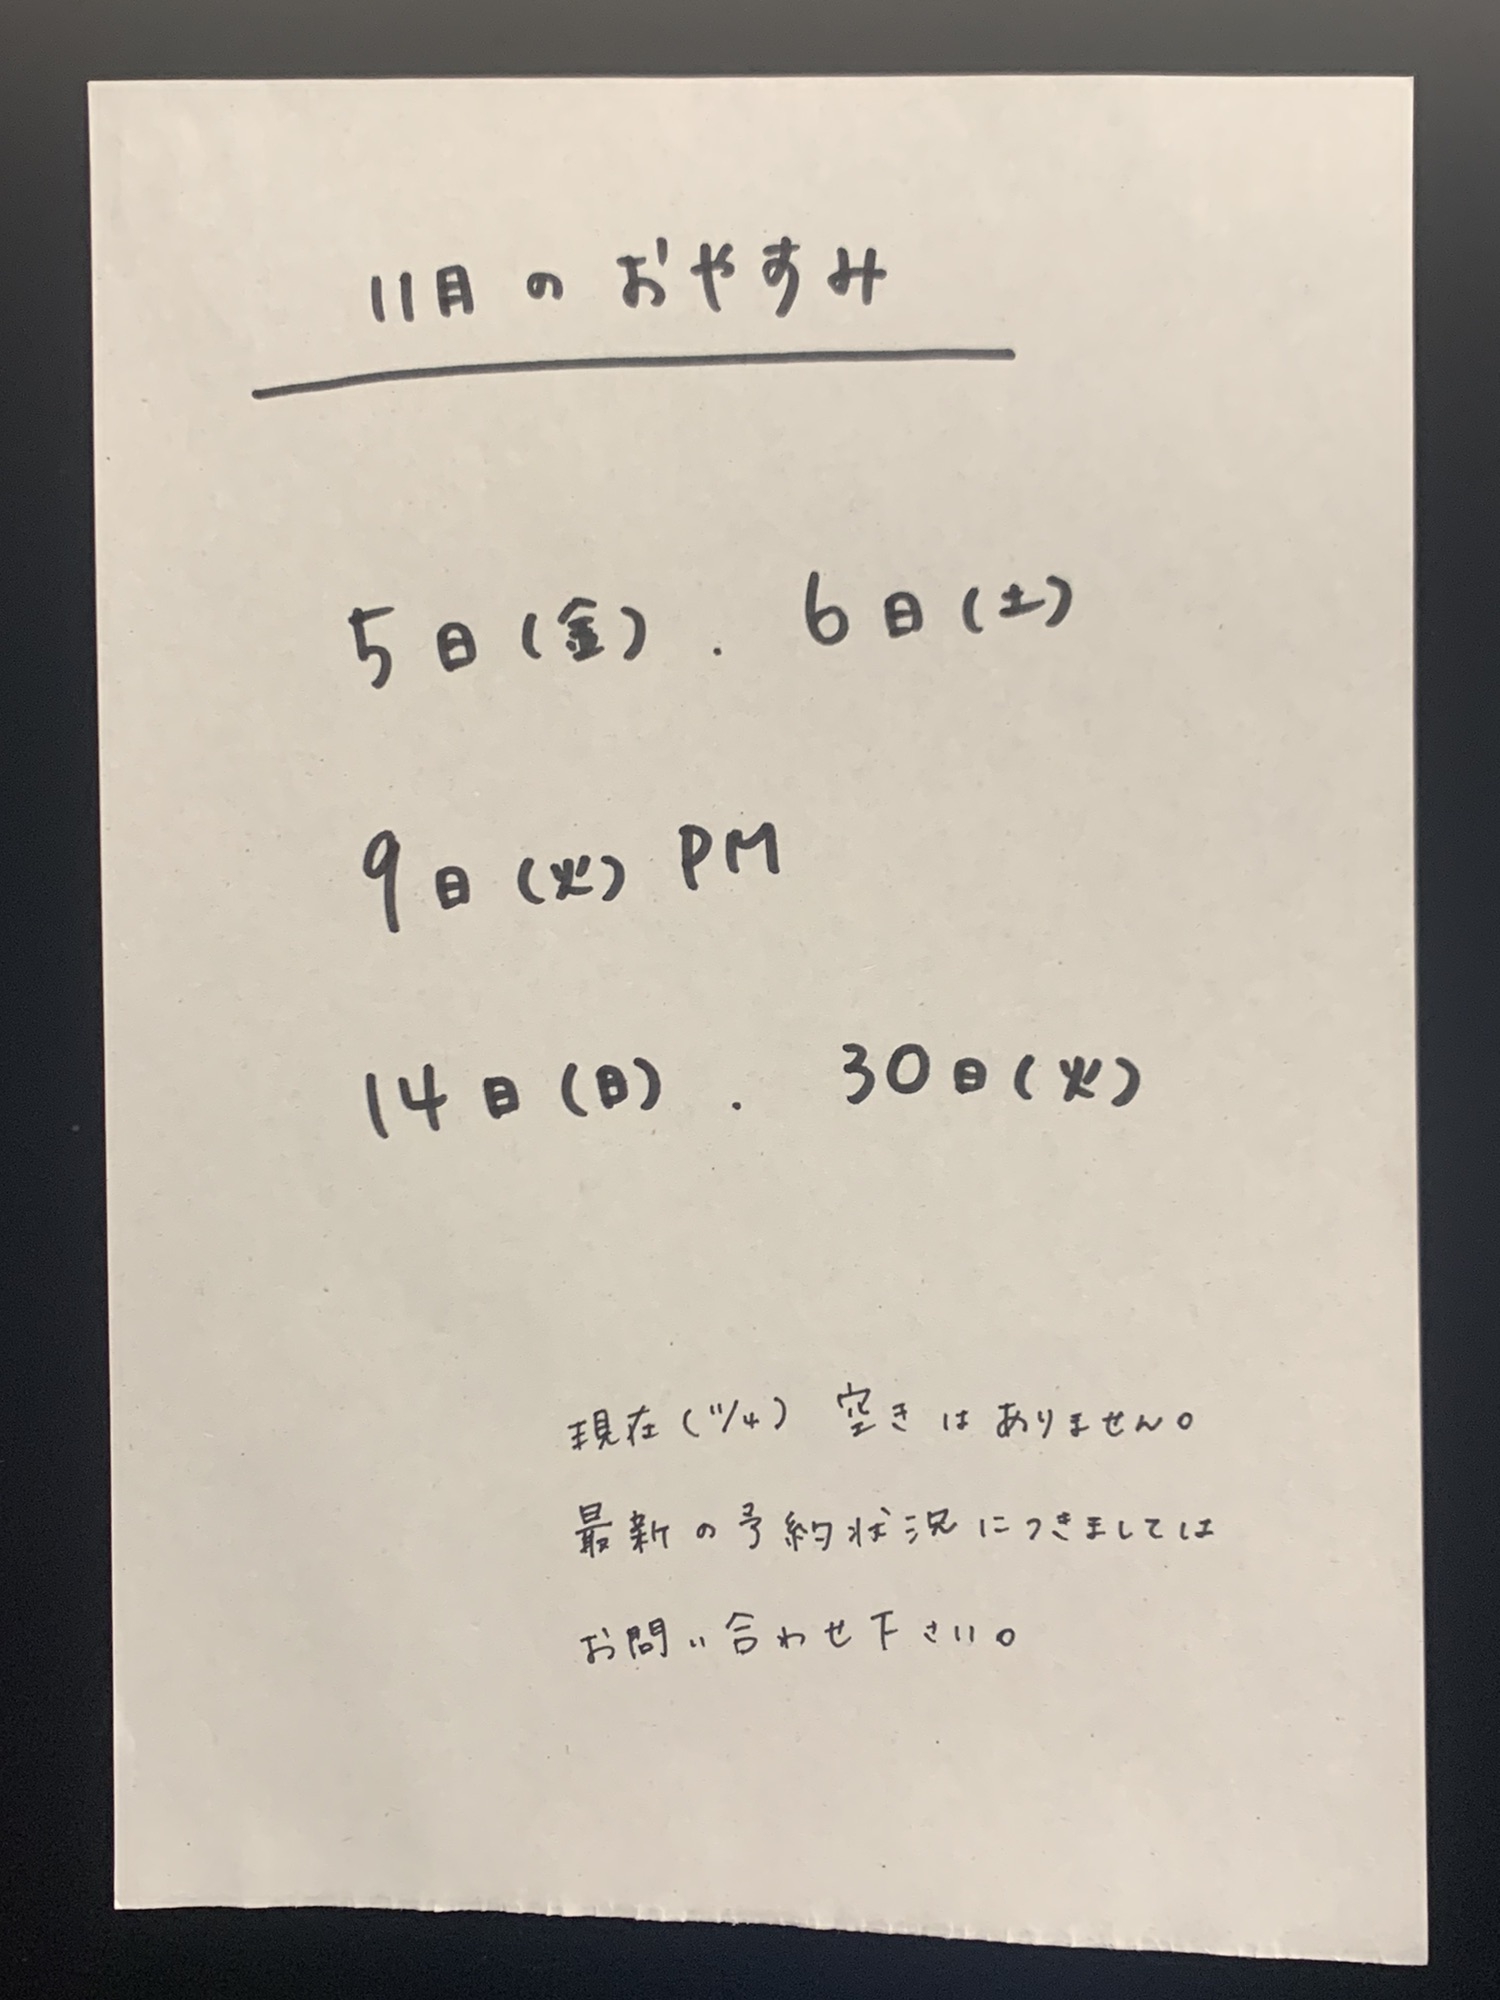 11月のおやすみ
5日(金). 6日(土)
9日(火) PM
14日(日). 30日(火)
現在(11/4) 空きはありません。
最新の予約状況につきましては
お問い合わせ下さい。